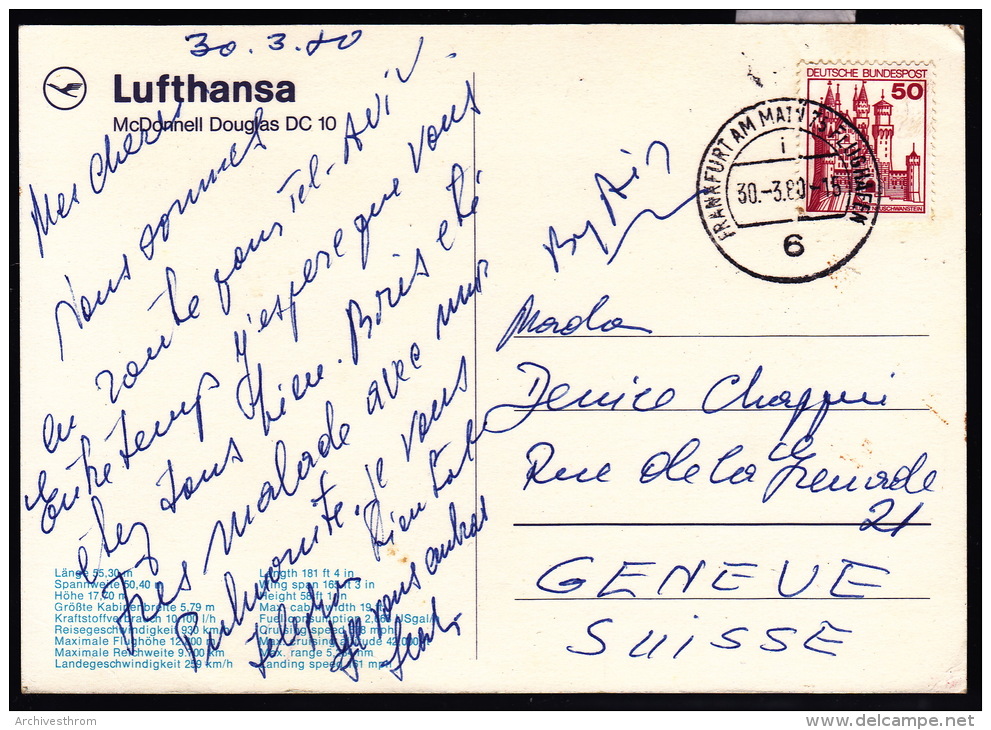 30.3.80
Lufthansa
McDonnell Douglas DC 10
Mes chers
Nous sommes
en route pour Tel-Aviv.
Entre temps j'espere que vous
étes tous bien. Boris eté
tres malade avec une
Pnemonite. Je vous
bien tot
Je vous embras
DEUTSCHE BUNDESPOST
50
NEUSCHWANSTEIN
FRANKFURT AM MAIN 75 FLUGHAFEN
30.-3.80-15
6
By Air
Madam
Denise Chappui
Rue de la Grenade
21
GENEVE
SUISSE
Länge 55,30 m
Spannweite 50,40 m
Höhe 17,70 m
Größte Kabinenbreite 5,79 m
Kraftstoffverbrauch 10.100 l/h
Reisegeschwindigkeit 930 km/h
Maximale Flughöhe 12.800 m
Maximale Reichweite 9.700 km
Landegeschwindigkeit 259 km/h
Length 181 ft 4 in
Wing span 165 ft 3 in
Height 58 ft 1 in
Max. cabin width 19
Fuel consumption 2,668 USGal/h
Cruising speed mph
Max. cruising altitude 42.000 ft
Max. range 5, nm
Landing speed 161 mph
Archivesthrom
www.delcampe.net